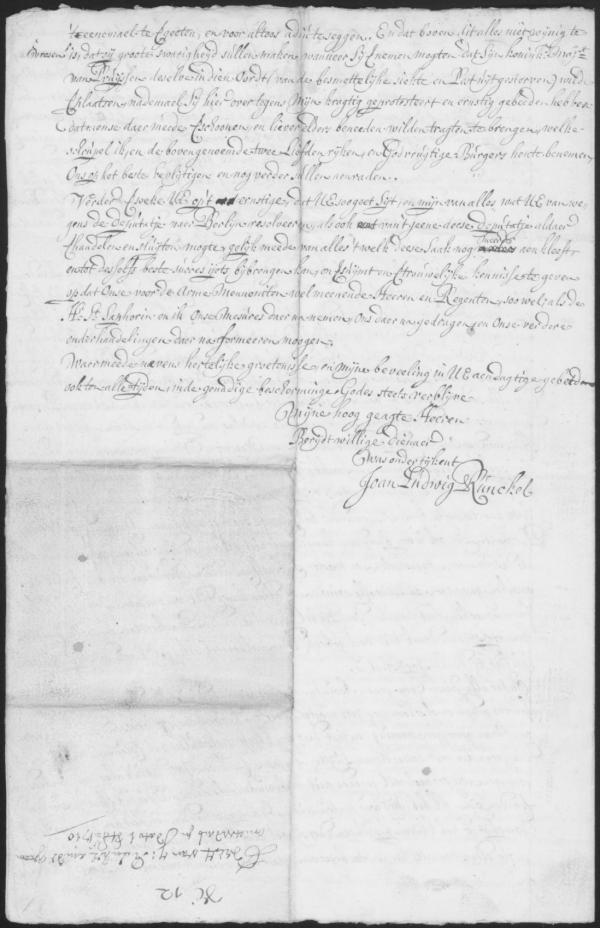 t'eenemael te , en voor altoos adiu te seggen. En dat boven dit alles niet weynig te
vreesen is, dat sy groote swarigheyd sullen maken, wanneer sy mogten dat Syn Koninkl. Majt.
van Pruyssen deselve in dien Oordt (van de besmettelijke siekte en Pest uytgestorven) wilde
plaatsen, nademael sy hier over tegens Mijn kragtig geprotesteert en ernstig gebeeden hebben
dat mense daer mede , en liever elders beneeden wilden tragten te brengen, welke
scrupel ik, en de bovengenoemde twee Liefden rijken, en Godvrugtige Burgers heurte benemen,
Ons op het beste bevlytigen en nog verder sullen aenraden.
Vorder Ue op't ernstigste, dat Ue soo goet Syt, en mijn van alles wat UE van we-
gens de Deputatie naer Berlijn resolveeren, als ook van't geene deese Deputatie aldaer
handelen en sluyten mogte, gelijk meede van alles 't welk deese Saak nog aenkleeft,
en tot deselfs beste succes yets bybrengen kan, en getrouwelyke kennisse te geven
op dat Onse voor de Arme Mennoniten wel meenende Heeren en Regenten, soo wel, als de
Hr. St. Saphorin en ik Onse Mesures daer na nemen, Ons daer na gedragen, en Onse verdere
onderhandelingen daer na formeeren moogen.
Waermeede nevens hertelijke groetenisse, en mijne beveeling in UE aendagtige gebeden
ook ten alle tijden, in de genadige bescherminge Godes steets verblyve
Mijne hoog geagte Heeren
Bereydtwillige Dienaer
was ondertykent
Joan Ludwig Runckel
No 12